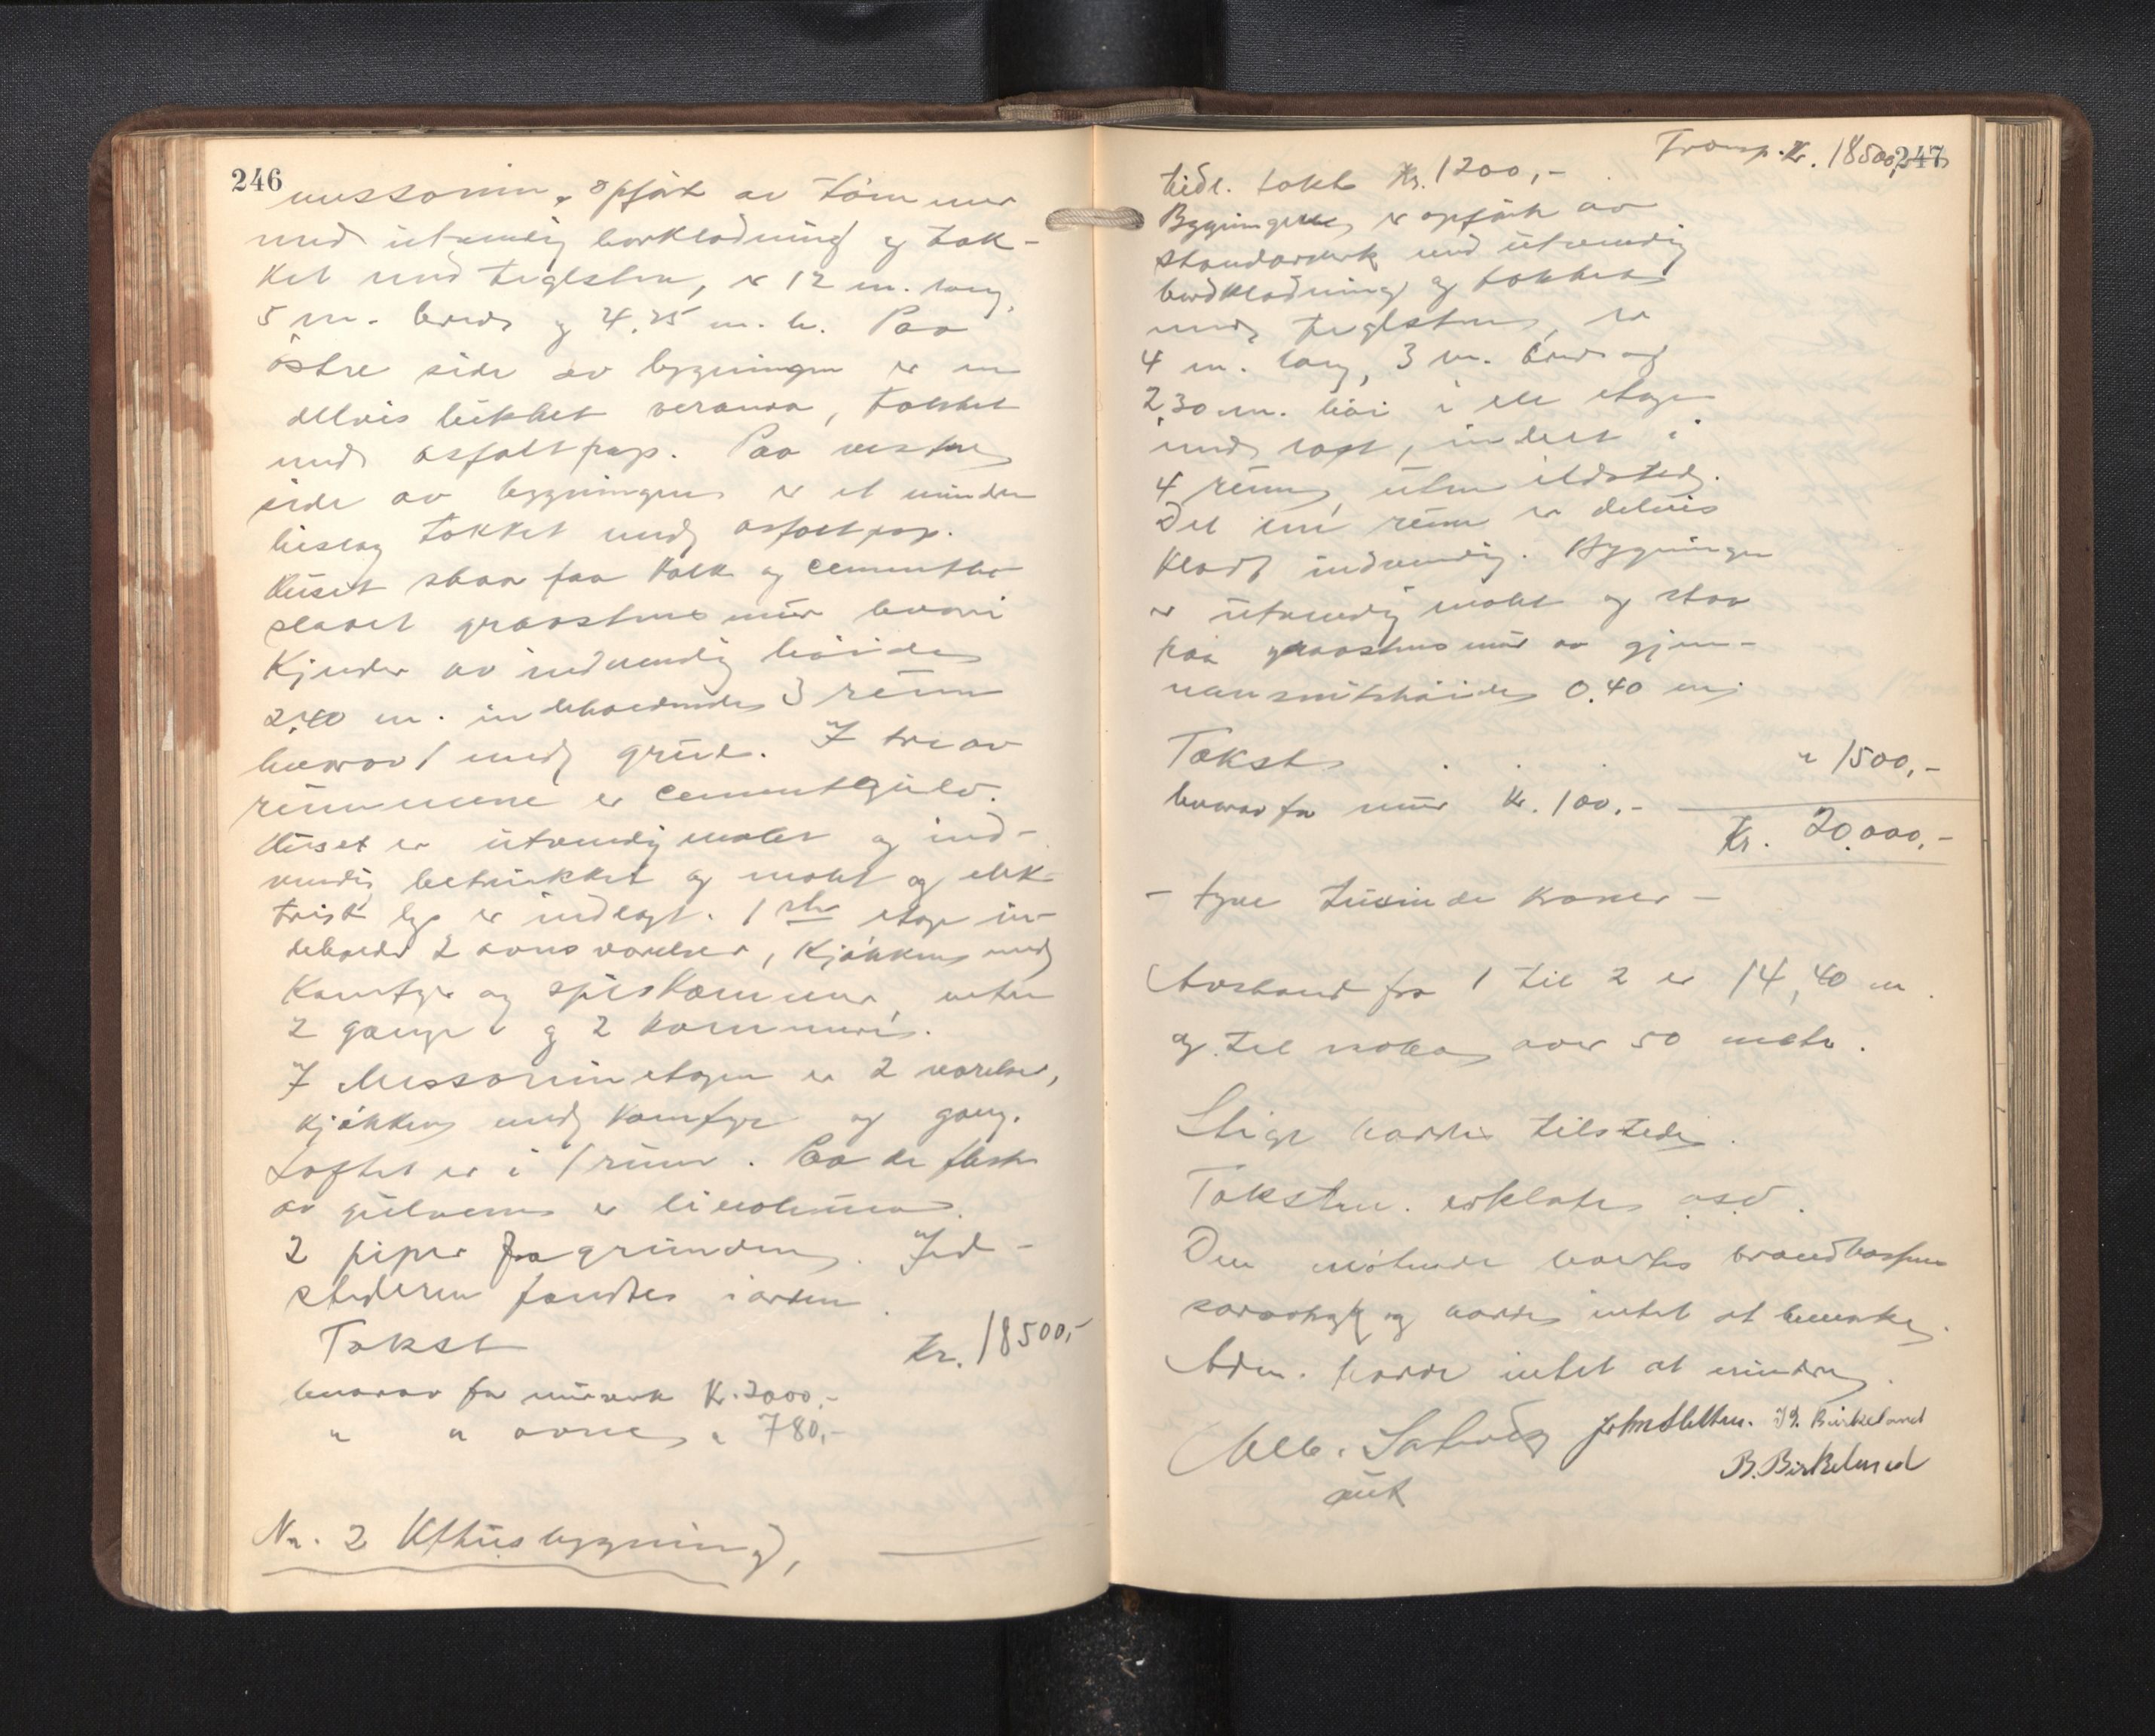 246
messanin, opført av tømmer
med utvendig bordklædning og tæk-
ket med teglsten, er 12 m. lang,
5 m. bred og 4.25 m. h. Paa
østre side av bygningen er en
delvis lukket veranda, tækket
med asfaltpap. Paa vestre
side av bygningen er et mindre
bislag tækket med asfaltpap.
Huset staar paa kalk og cementbe-
slaaet graastensmur hvori
kjelder av indvendig høide
2,40 m. indeholdende 3 rum
hvorav 1 med grue. I tre av
rummene er cementgulv.
Huset er utvendig malet og ind-
vendig betrukket og malet og elek-
trisk lys er indlagt. 1ste etage in-
deholder 2 ovnsværelser, kjøkken med
komfyr og spiskammer, uten
2 gange og 2 kammers.
I Messaninetagen er 2 værelser,
kjøkken med komfyr og gang.
Loftet er i 1 rum. Paa de fleste
av gulvene er linoleum.
2 piper fra grunden. Ild-
stederne fandtes i orden.
Takst Kr. 18500,-
hvorav for murverk Kr. 2000,-
" " ovne " 780,-
Nr. 2 Uthusbygning,
Transp. Kr. 18500,- 247
tidl. takst Kr. 1200,-
Bygningen er opført av
standerverk med utvendig
bordklædning og tækket
med teglsten, er
4 m. lang, 3 m. bred og
2,30 m. høi i ele etage
med loft, inndelt i
4 rum, uten ildsted.
Det ene rum er delvis
klædt indvendig. Bygningen
er utvendig malet og staar
paa graastensmur av gjen-
nemsnitshøide 0.40 m.
Takst . . . " 1500,-
hvorav for mur Kr. 100,-
Kr. 20.000,-
- tyve tusinde kroner -
Avstand fra 1 til 2 er 14,40 m.
og til naboe over 50 meter.
Stige havdes tilstede.
Taksten erklæres osv.
Den møtende havdes brandkassens
og havde intet at bemerke.
Adm. havde intet at erindre.
Alb. John Sletten. Birkeland
B. Birkeland